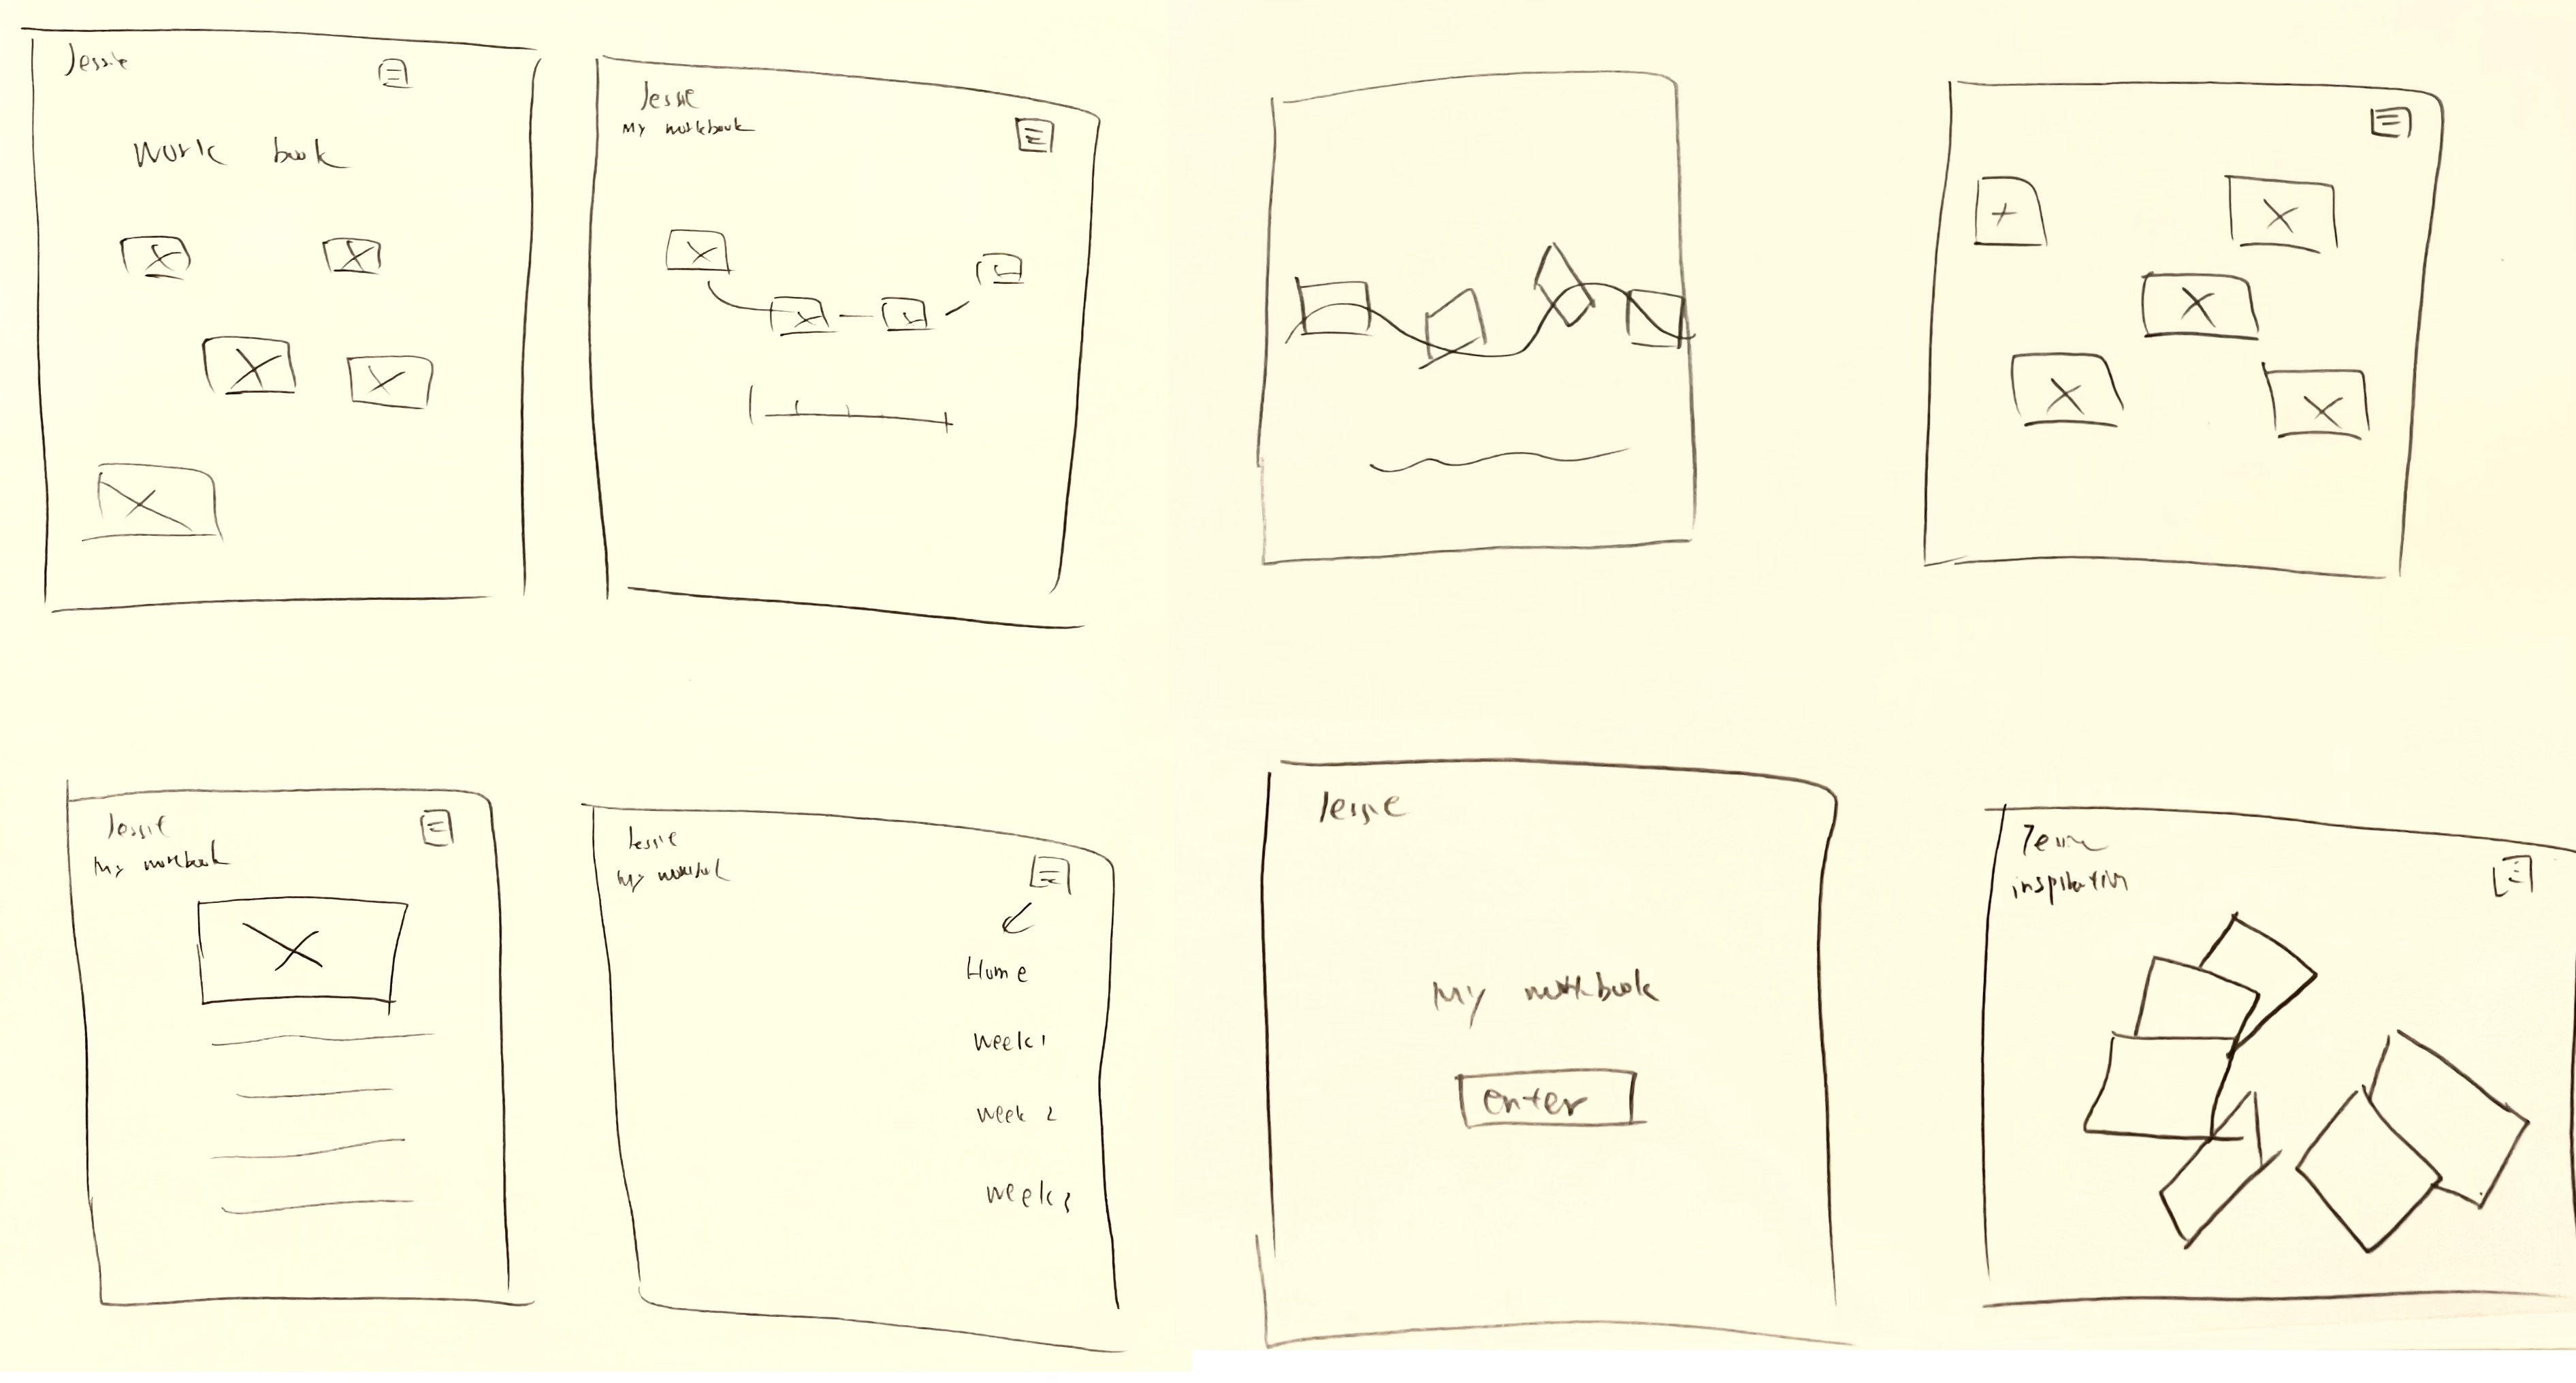 Jessie
Work book
Jessie
My workbook
Jessie
My workbook
Jessie
My
Home
Week 1
Week 2
Week 3
Jessie
My workbook
enter
inspiration